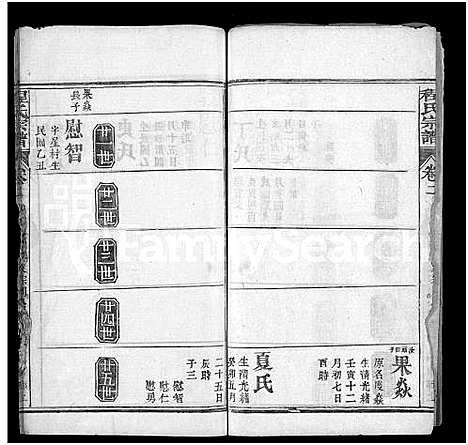 程氏宗譜
卷二
果焱
原名度焱
生清光緒
壬寅十二
月初七日
酉時
夏氏
生清光緒
癸卯五月
二十五日
辰時
子三
慰智
慰仁
慰勇
廿一世
廿二世
廿三世
廿四世
廿五世
果焱
長子
慰智
字星村生
民國乙丑
程氏宗譜
FamilySearch